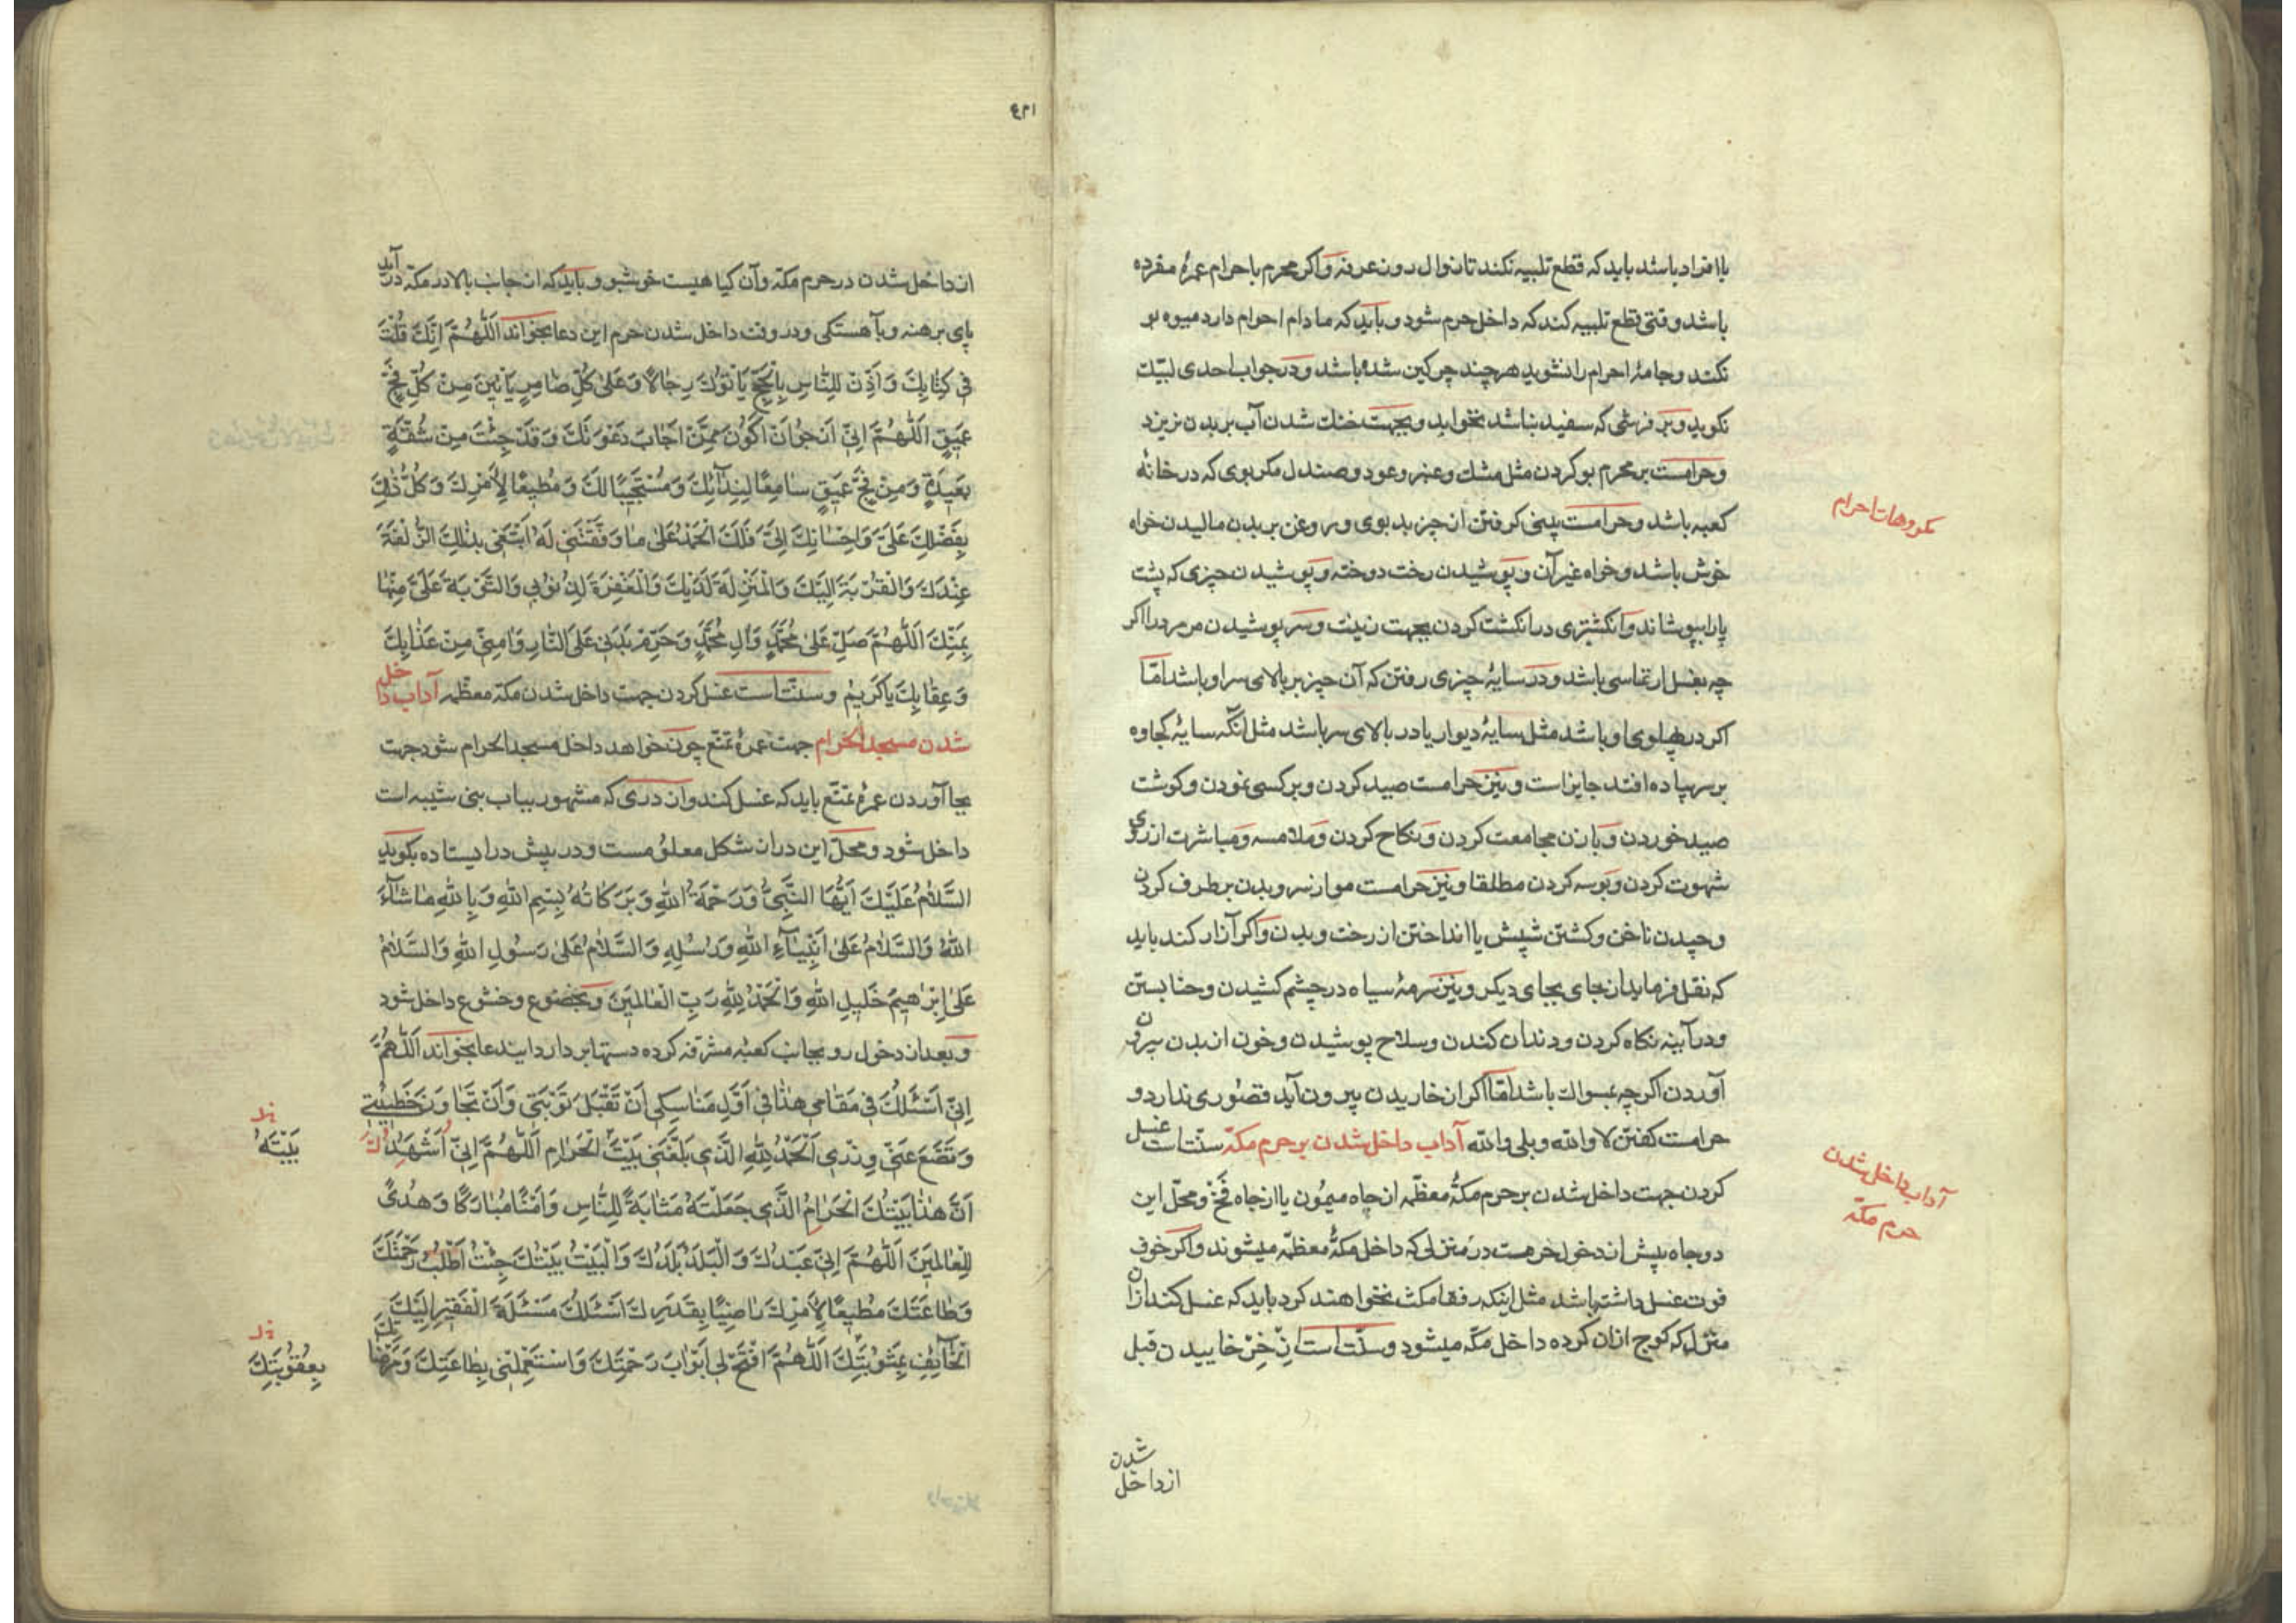 یا افراد باشد باید که قطع تلبیه نکند تا زوال روز عرفه و اکر محرم باحرام عمرهٔ مفرده
باشد وقتی قطع تلبیه کند که داخل حرم شود و باید که مادام احرام دارد میوه بو
نکند و جامهٔ احرام را نشوید هرچند چرکین شده باشد و در جواب احدی لبیک
نکوید و بر فرشی که سفید نباشد نخوابد و بجهت خنک شدن آب بر بدن نریزد
مکروهات احرام
و حرامست بر محرم بو کردن مثل مشک و عنبر و عود و صندل مکر بوی که در خانهٔ
کعبه باشد و حرامست بینی کرفتن از چیز بد بوی و روغن بر بدن مالیدن خواه
خوش باشد و خواه غیر آن و پوشیدن رخت دوخته و پوشیدن چیزی که پشت
پا را بپوشاند و انکشتری در انکشت کردن بجهت زینت و سر پوشیدن مر مرد را اکر
چه بغسل ارتماسی باشد و در سایهٔ چیزی رفتن که آن چیز بر بالای سر او باشد امّا
اکر در پهلوی او باشد مثل سایهٔ دیوار یا در بالای سر باشد مثل آنکه سایهٔ کجاوه
بر سر پیاده افتد جایز است و نیز حرامست صید کردن و بر کسی نمودن و کوشت
صید خوردن و با زن مجامعت کردن و نکاح کردن و ملامسه و مباشرت از روی
شهوت کردن و بوسه کردن مطلقا و نیز حرامست مو از سر و بدن برطرف کردن
و چیدن ناخن و کشتن شپش یا انداختن از رخت و بدن و اکر آزار کند باید
که نقل فرماید از جای بجای دیکر و نیز سرمهٔ سیاه در چشم کشیدن و حنا بستن
و در آینه نکاه کردن و دندان کندن و سلاح پوشیدن و خون از بدن بیرون
آوردن اکر چه بمسواک باشد امّا اکر از خاریدن بیرون آید قصوری ندارد و
حرامست کفتن لا والله و بلی والله آداب داخل شدن بر حرم مکّه سنّت است غسل
آداب داخل شدن
حرم مکّه
کردن جهت داخل شدن بر حرم مکّهٔ معظّمه از چاه میمُون یا از چاه فَخّ و محلّ این
دو چاه پیش از دخول حرمست در منزلی که داخل مکّهٔ معظّمه میشوند و اکر خوف
فوت غسل داشته باشد مثل اینکه رفقا مکث نخواهند کرد باید که غسل کند از آن
منزل که کوچ از آن کرده داخل مکّه میشود و سنّت است اِذخِر خاییدن قبل
شدن
از داخل
۱۳۶
از داخل شدن در حرم مکّه و آن کیاهیست خوشبو و باید که از جانب بالا در مکّه در آید
پای برهنه و بآهستکی و در وقت داخل شدن حرم این دعا بخواند اَللّٰهُمَّ اِنَّكَ قُلْتَ
فی كِتٰابِكَ وَ اَذِّنْ لِلنّٰاسِ بِالْحَجِّ یَأتُوكَ رِجٰالًا وَ عَلیٰ كُلِّ ضٰامِرٍ یَأتینَ مِنْ كُلِّ فَجٍّ
عَمیقٍ اَللّٰهُمَّ اِنّی اَرْجُو اَنْ اَكُونَ مِمَّنْ اَجٰابَ دَعْوَتَكَ وَ قَدْ جِئْتُ مِنْ شُقَّةٍ
بَعیدَةٍ وَ مِنْ فَجٍّ عَمیقٍ سٰامِعًا لِنِدٰائِكَ وَ مُسْتَجیبًا لَكَ وَ مُطیعًا لِاَمْرِكَ وَ كُلُّ ذٰلِكَ
بِفَضْلِكَ عَلَیَّ وَ اِحْسٰانِكَ اِلَیَّ فَلَكَ الْحَمْدُ عَلیٰ مٰا وَفَّقْتَنی لَهُ اَبْتَغی بِذٰلِكَ الزُّلْفَةَ
عِنْدَكَ وَ الْقُرْبَةَ اِلَیْكَ وَ الْمَنْزِلَةَ لَدَیْكَ وَ الْمَغْفِرَةَ لِذُنُوبی وَ التَّوْبَةَ عَلَیَّ مِنْهٰا
بِمَنِّكَ اَللّٰهُمَّ صَلِّ عَلیٰ مُحَمَّدٍ وَ آلِ مُحَمَّدٍ وَ حَرِّمْ بَدَنی عَلَی النّٰارِ وَ اٰمِنّی مِنْ عَذٰابِكَ
وَ عِقٰابِكَ یٰا كَریمُ و سنّت است غسل کردن جهت داخل شدن مکّه معظّمه آداب داخل
شدن مسجد الحرام جهت عمرهٔ تمتّع چون خواهد داخل مسجد الحرام شود جهت
بجا آوردن عمرهٔ تمتّع باید که غسل کند و از دری که مشهور بباب بنی شیبه است
داخل شود و محلّ این در از شکل معلومست و در پیش در ایستاده بکوید
السَّلٰامُ عَلَیْكَ اَیُّهَا النَّبِیُّ وَ رَحْمَةُ اللهِ وَ بَرَكٰاتُهُ بِسْمِ اللهِ وَ بِاللهِ مٰا شٰآءَ
اللهُ وَ السَّلٰامُ عَلیٰ اَنْبِیٰآءِ اللهِ وَ رُسُلِهِ وَ السَّلٰامُ عَلیٰ رَسُولِ اللهِ وَ السَّلٰامُ
عَلیٰ اِبْرٰهیمَ خَلیلِ اللهِ وَ الْحَمْدُ لِلّٰهِ رَبِّ الْعٰالَمینَ و بخضوع و خشوع داخل شود
و بعد از دخول رو بجانب کعبهٔ مشرّفه کرده دستها بردارد این دعا بخواند اَللّٰهُمَّ
اِنّی اَسْئَلُكَ فی مَقٰامی هٰذٰا فی اَوَّلِ مَنٰاسِكی اَنْ تَقْبَلَ تَوْبَتی وَ اَنْ تَجٰاوَزَ خَطیئَتی
وَ تَضَعَ عَنّی وِزْری اَلْحَمْدُ لِلّٰهِ الَّذی بَلَّغَنی بَیْتَ الْحَرٰامِ اَللّٰهُمَّ اِنّی اُشْهِدُكَ
بَیْتَهُ
اَنَّ هٰذٰا بَیْتُكَ الْحَرٰامُ الَّذی جَعَلْتَهُ مَثٰابَةً لِلنّٰاسِ وَ اَمْنًا مُبٰارَكًا وَ هُدیً
لِلْعٰالَمینَ اَللّٰهُمَّ اِنّی عَبْدُكَ وَ الْبَلَدُ بَلَدُكَ وَ الْبَیْتُ بَیْتُكَ جِئْتُ اَطْلُبُ رَحْمَتَكَ
وَ طٰاعَتَكَ مُطیعًا لِاَمْرِكَ رٰاضِیًا بِقَدَرِكَ اَسْئَلُكَ مَسْئَلَةَ الْفَقیرِ اِلَیْكَ
الْخٰآئِفِ بِمَثُوبَتِكَ اَللّٰهُمَّ افْتَحْ لی اَبْوٰابَ رَحْمَتِكَ وَ اسْتَعْمِلْنی بِطٰاعَتِكَ وَ مَرْضٰاتِكَ
بِعُقُوبَتِكَ